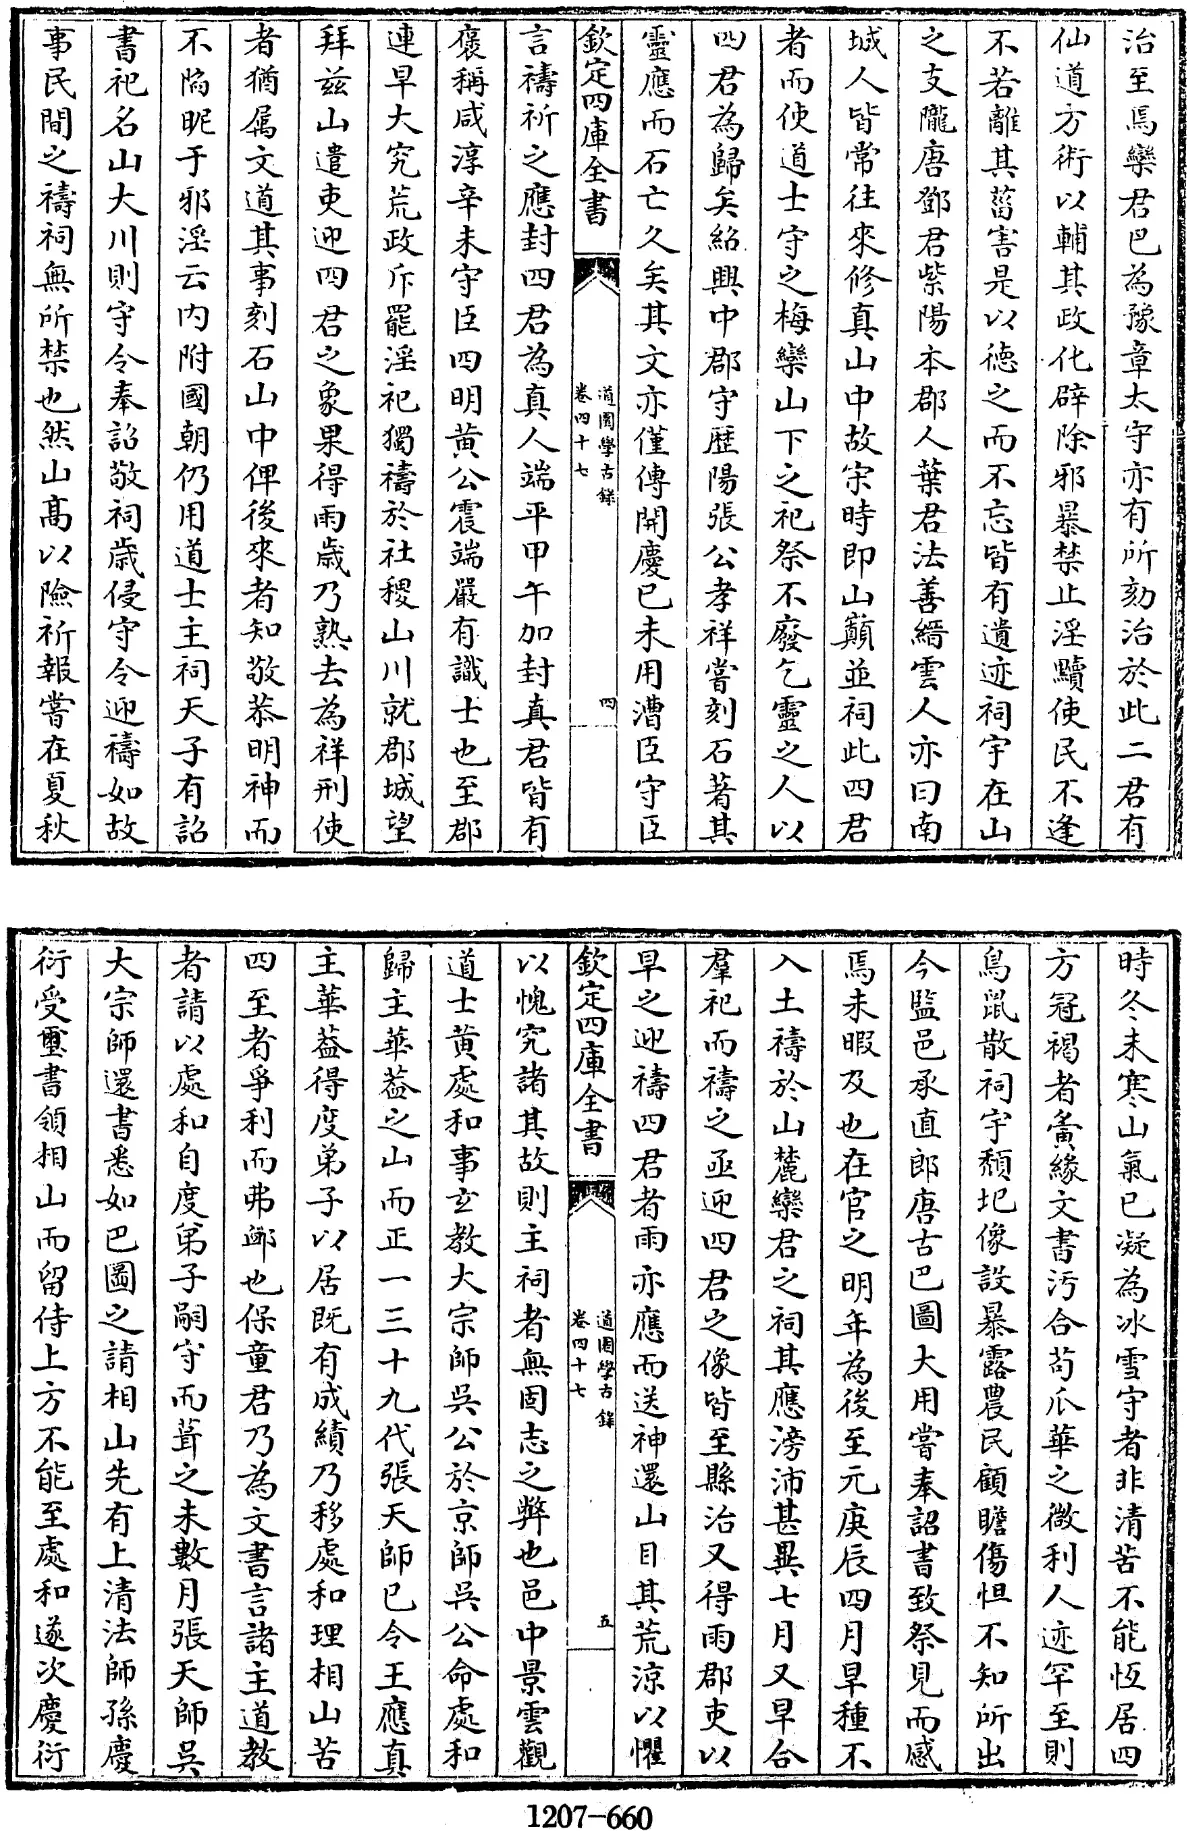 治至焉欒君巴為豫章太守亦有所劾治於此二君有
仙道方術以輔其政化辟除邪暴禁止淫黷使民不逢
不若離其菑害是以徳之而不忘皆有遺迹祠宇在山
之支隴唐鄧君紫陽本郡人葉君法善縉雲人亦曰南
城人皆常往來修真山中故宋時即山巔並祠此四君
者而使道士守之梅欒山下之祀祭不廢乞靈之人以
四君為歸矣紹興中郡守歴陽張公孝祥嘗刻石著其
靈應而石亡久矣其文亦僅傳開慶已未用漕臣守臣
欽定四庫全書
道園學古録
卷四十七
四
言禱祈之應封四君為真人端平甲午加封真君皆有
褒稱咸淳辛未守臣四明黄公震端嚴有識士也至郡
連旱大究荒政斥罷淫祀獨禱於社稷山川就郡城望
拜兹山遣吏迎四君之象果得雨歳乃熟去為祥刑使
者猶屬文道其事刻石山中俾後來者知敬恭明神而
不陷昵于邪淫云内附國朝仍用道士主祠天子有詔
書祀名山大川則守令奉詔敬祠歳侵守令迎禱如故
事民間之禱祠無所禁也然山髙以險祈報嘗在夏秋
時冬未寒山氣已凝為冰雪守者非清苦不能恆居四
方冠褐者夤緣文書汚合苟爪華之微利人迹罕至則
鳥鼠散祠宇頽圯像設暴露農民顧瞻傷怛不知所出
今監邑承直郎唐古巴圖大用嘗奉詔書致祭見而感
焉未暇及也在官之明年為後至元庚辰四月旱種不
入土禱於山麓欒君之祠其應滂沛甚異七月又旱合
羣祀而禱之亟迎四君之像皆至縣治又得雨郡吏以
旱之迎禱四君者雨亦應而送神還山目其荒凉以懼
欽定四庫全書
道園學古録
卷四十七
五
以愧究諸其故則主祠者無固志之弊也邑中景雲觀
道士黄處和事玄教大宗師吳公於京師吳公命處和
歸主華葢之山而正一三十九代張天師已令王應真
主華葢得度弟子以居既有成績乃移處和理相山苦
四至者爭利而弗䘏也保童君乃為文書言諸主道教
者請以處和自度弟子嗣守而葺之未數月張天師吳
大宗師還書悉如巴圖之請相山先有上清法師孫慶
衍受璽書領相山而留侍上方不能至處和遂次慶衍
1207-660